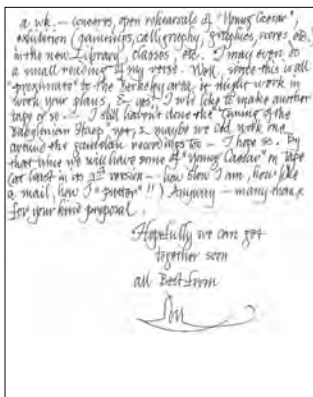 a wk. — concerts, open rehearsals of "Young Caesar",
exhibition (paintings, calligraphy, graphics, scores etc.)
in the new Library, classes, etc. I may even do
a small reading of my verse. Well, since this is all
"proximate" to the Berkeley area, it might work in
work your plans, & yes, I wld like to make another
tape or so — I still haven't done the "Tuning of the
Babylonian Harp" yet, & maybe we cld work one
around the gamelan recordings too — I hope so. By
that time we will have some of "Young Caesar" on tape
(at least in its 1st version — how slow I am, how like
a snail, how I "putter"!!) Anyway — many thanx
for your kind proposal.
Hopefully we can get
together soon
all Best from
Lou